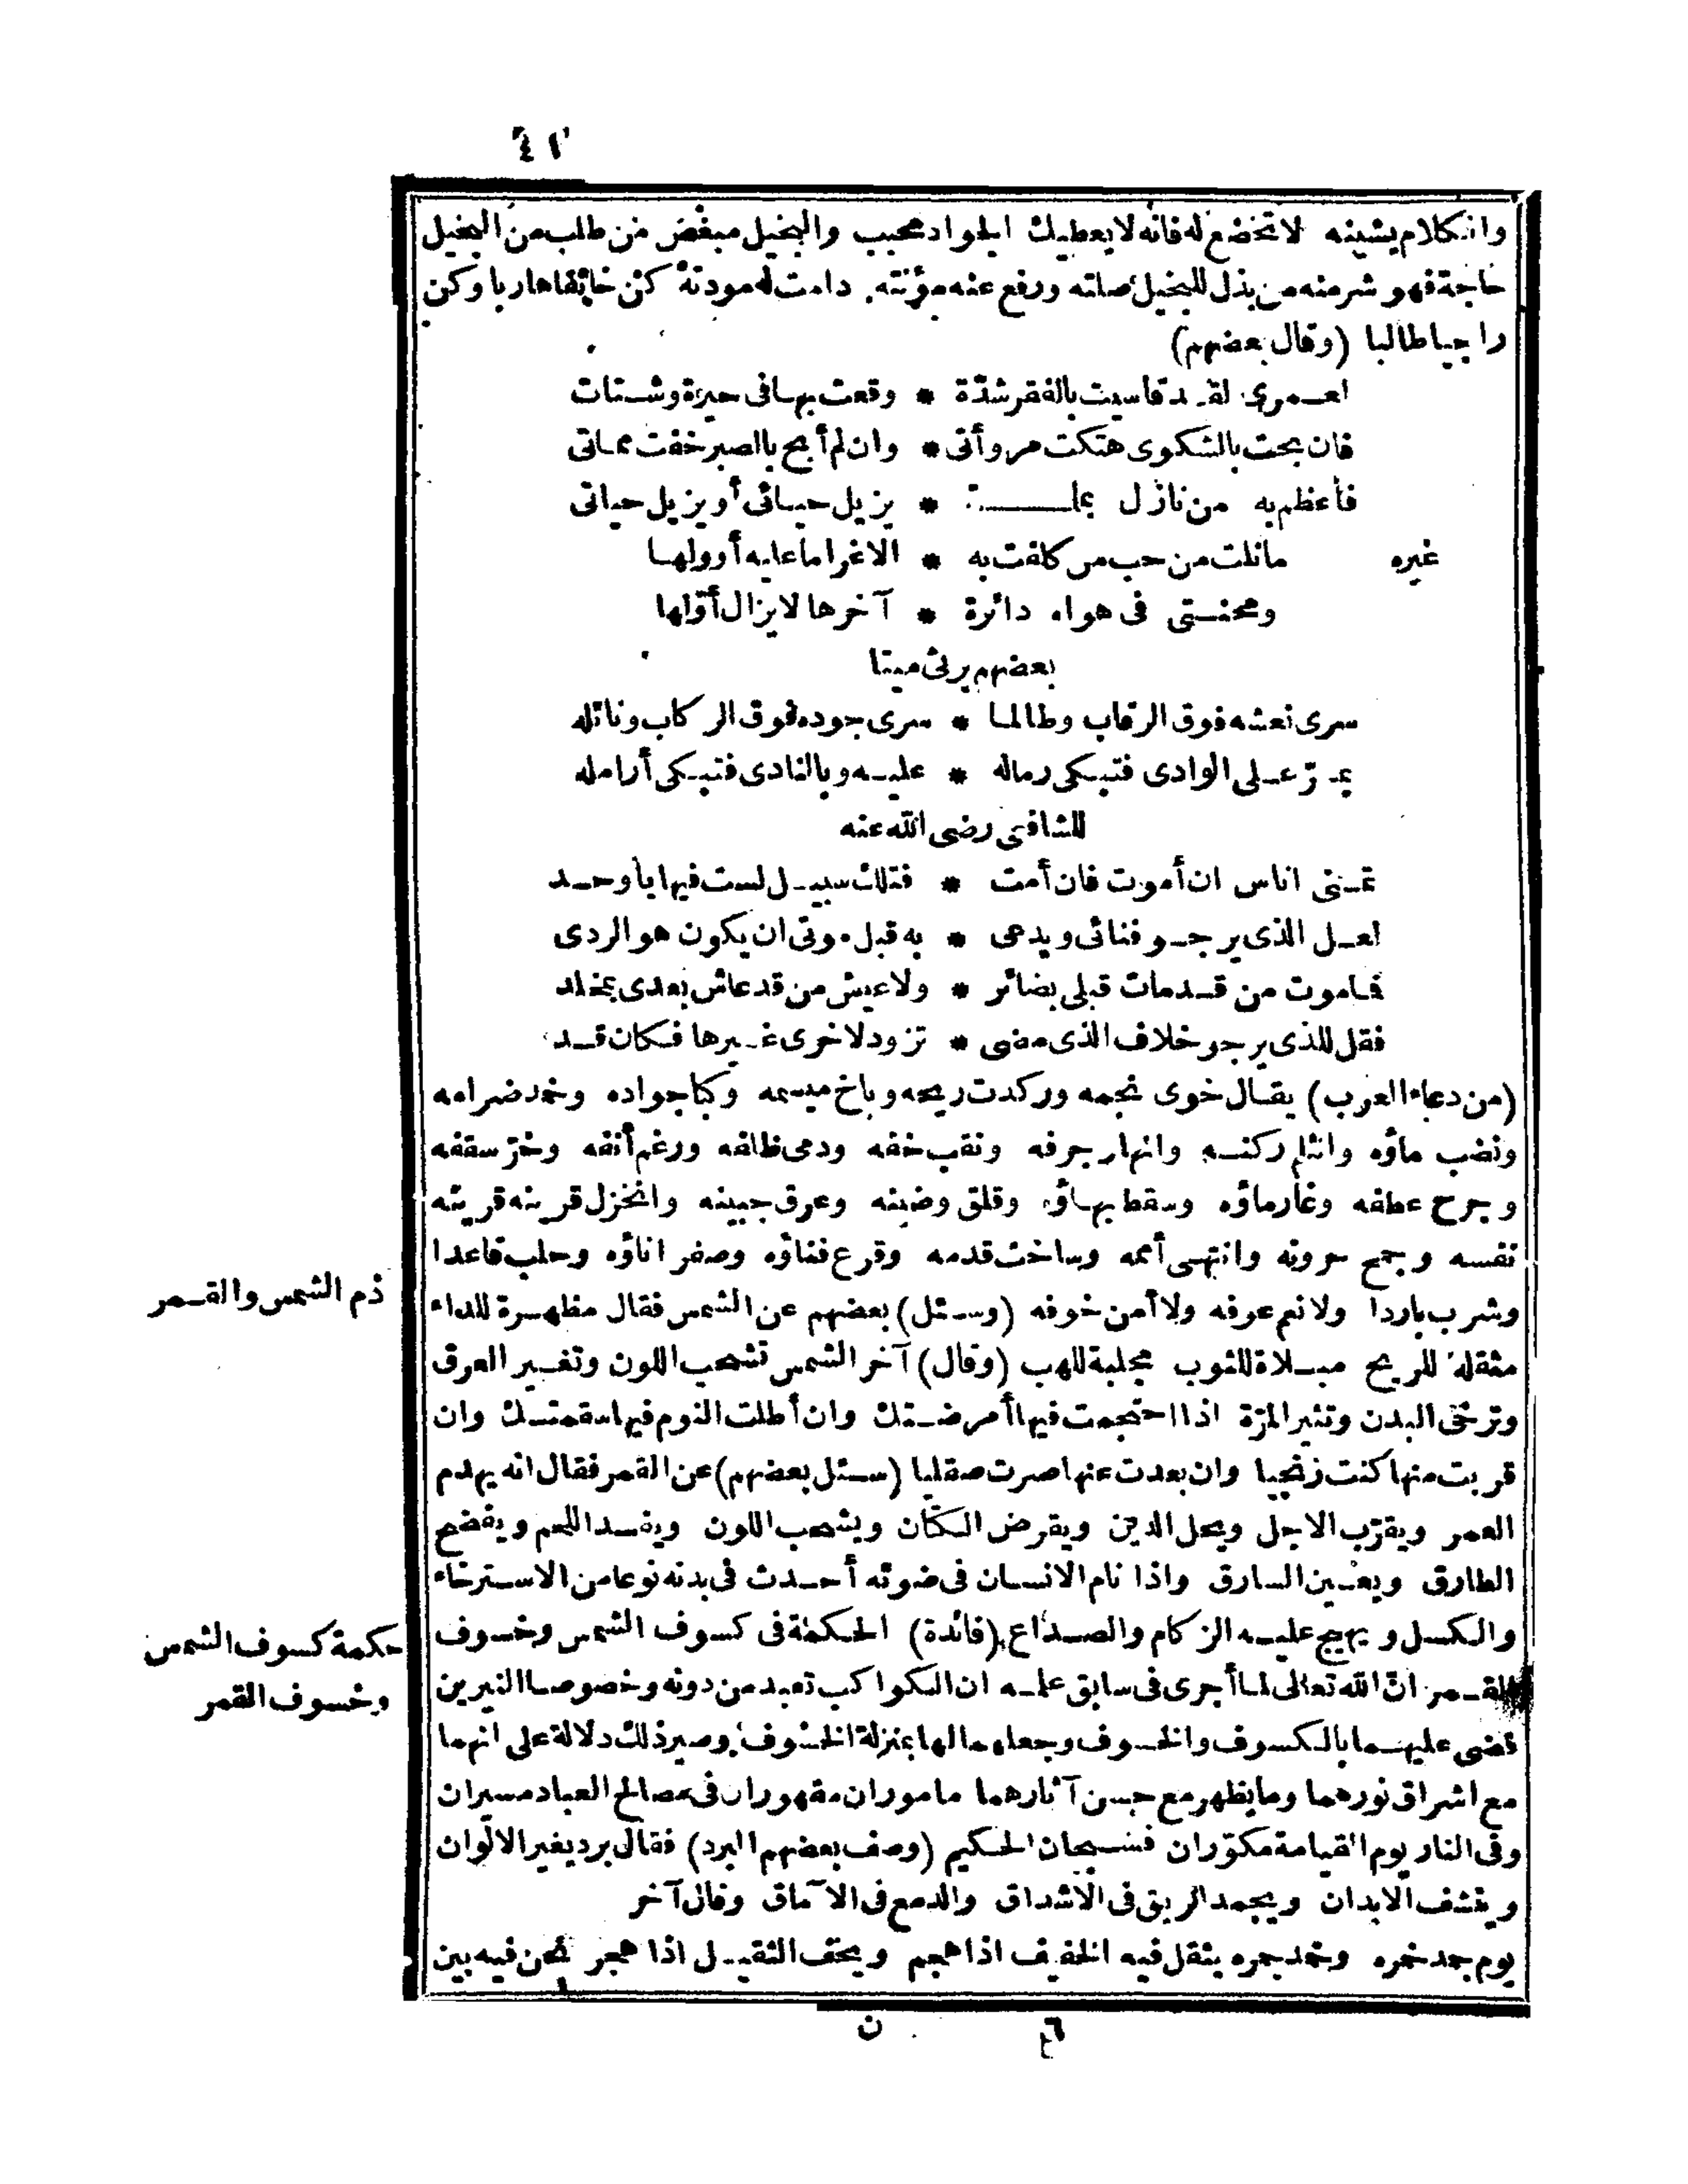 ٤١
وانكلام يشينه لا تخضع له فانه لا يعطيك الجواد محبب والبخيل مبغض فمن طلب من البخيل
حاجة فهو شر منه من بذل للبخيل صلته ورفع عنه مؤنته دامت له مودته كن خائفا هاربا وكن
راجيا طالبا (وقال بعضهم)
لعمرى لقد قاسيت بالفقر شدّة * وقعت بها فى حيرة وشتات
فان بحت بالشكوى هتكت مروأتى * وان لم أبح بالصبر خفت مماتى
فأعظم به من نازل بملمة * يزيل حيائى أو يزيل حياتى
غيره ما نلت من حب من كلفت به * الا غراما عليه أو ولها
ومحنتى فى هواه دائرة * آخرها لا يزال أوّلها
بعضهم يرثى ميتا
سرى نعشه فوق الرقاب وطالما * سرى جوده فوق الركاب ونائله
يمرّ على الوادى فتبكى رماله * عليه وبالنادى فتبكى أرامله
للشافعى رضى الله عنه
تمنى اناس ان أموت فان أمت * فتلك سبيل لست فيها باوحد
لعل الذى يرجو فنائى ويدعى * به قبل موتى ان يكون هو الردى
فما موت من قد مات قبلى بضائر * ولا عيش من قد عاش بعدى بمخلد
فقل للذى يرجو خلاف الذى مضى * تزود لاخرى غيرها فكان قد
(من دعاء العرب) يقال خوى نجمه وركدت ريحه وباخ ميسمه وكبا جواده وخمد ضرامه
ونضب ماؤه وانثلم ركنه وانهار جرفه ونقب خفه ودمى ظلفه ورغم أنفه وخرّ سقفه
وجرح عطفه وغار ماؤه وسقط بهاؤه وقلق وضينه وعرق جبينه وانخزل قرينه قريته
نفسه وجمح حرونه وانتهى أممه وساخت قدمه وقرع فناؤه وصفر اناؤه وحلب قاعدا
وشرب باردا ولا نعم عوفه ولا أمن خوفه (وسئل) بعضهم عن الشمس فقال مظهرة للداء
ذم الشمس والقمر
مثقلة للريح مبلاة للثوب مجلبة للهب (وقال) آخر الشمس تشحب اللون وتغير العرق
وترخى البدن وتثير المرّة اذا احتجمت فيها أمرضتك وان أطلت النوم فيها اسقمتك وان
قربت منها كنت زنجيا وان بعدت عنها صرت صقلبيا (سئل بعضهم) عن القمر فقال انه يهدم
العمر ويقرّب الاجل ويحل الدين ويقرض الكتان ويشحب اللون ويفسد اللحم ويفضح
الطارق ويعين السارق واذا نام الانسان فى ضوئه أحدث فى بدنه نوعا من الاسترخاء
والكسل ويهيج عليه الزكام والصداع (فائدة) الحكمة فى كسوف الشمس وخسوف
حكمة كسوف الشمس
القمر انّ الله تعالى لما أجرى فى سابق علمه ان الكواكب تعبد من دونه وخصوصا النيرين
وخسوف القمر
قضى عليهما بالكسوف والخسوف وجعلهما لها بمنزلة الخسوف وصير ذلك دلالة على انهما
مع اشراق نورهما وما يظهر مع حسن آثارهما ماموران مقهوران فى مصالح العباد مسيران
وفى النار يوم القيامة مكوّران فسبحان الحكيم (وصف بعضهم البرد) فقال برد يغير الالوان
ويقشف الابدان ويجمد الريق فى الاشداق والدمع فى الآماق وقال آخر
يوم جمد خمره وخمد جمره يثقل فيه الخفيف اذا هجم ويخف الثقيل اذا هجر نحن فيه بين
٦ ن